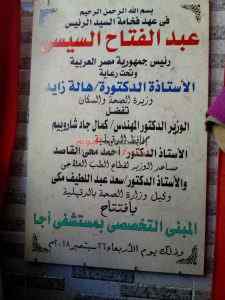 بسم الله الرحمن الرحيم
فى عهد فخامة السيد الرئيس
عبد الفتاح السيسى
رئيس جمهورية مصر العربية
وتحت رعاية
الأستاذة الدكتورة/ هالة زايد
وزيرة الصحة والسكان
تفضل
الوزير الدكتور المهندس/ كمال جاد شاروبيم
محافظ الدقهلية
الأستاذ الدكتور/ أحمد محى القاصد
مساعد الوزير لقطاع الطب العلاجى
والأستاذ الدكتور/ سعد عبد اللطيف مكى
وكيل وزارة الصحة بالدقهلية
بافتتاح
المبنى التخصصى بمستشفى أجا
وذلك يوم الأربعاء ٢٦ سبتمبر ٢٠١٨م